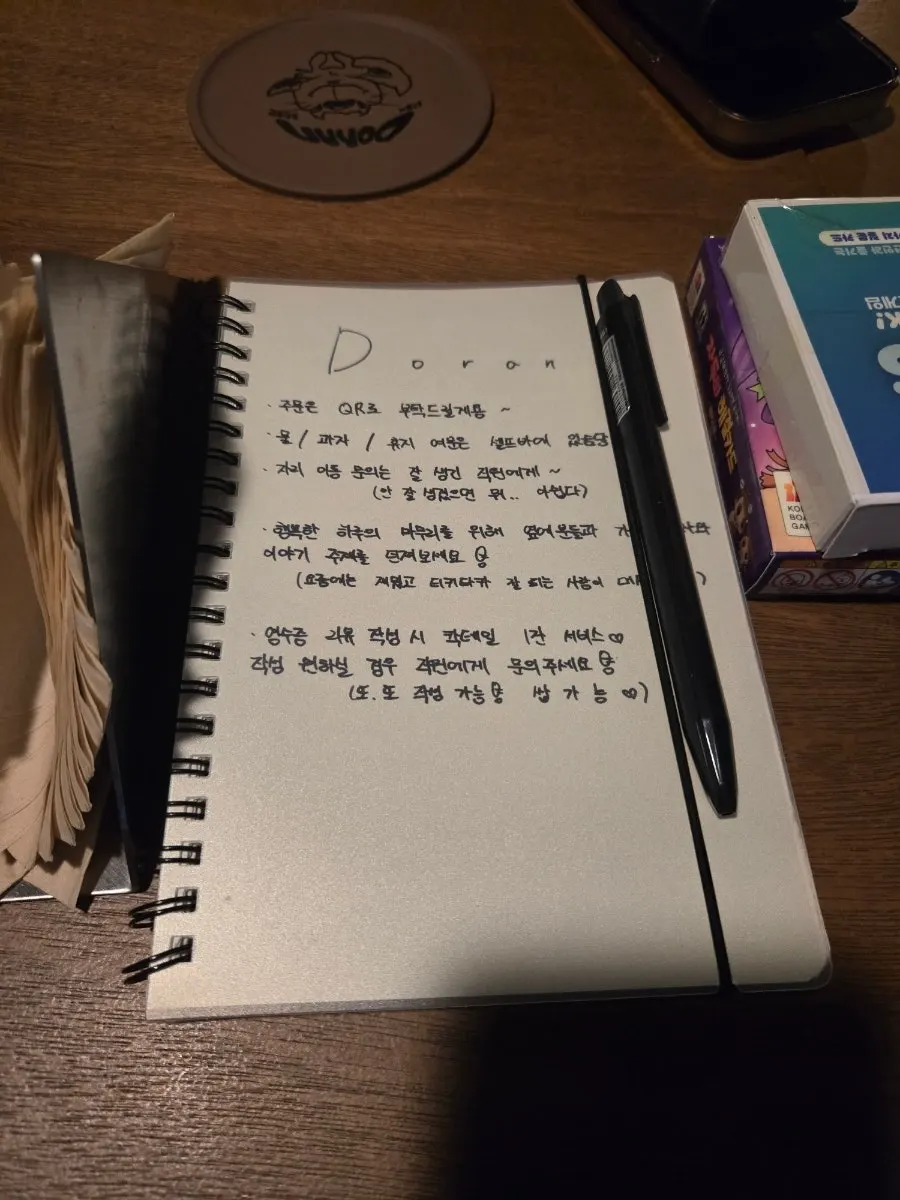 D o r a n
· 주문은 QR로 부탁드릴게용 ~
· 물 / 과자 / 휴지 여분은 셀프바에 있습당
· 자리 이동 문의는 잘 생긴 직원에게 ~
(안 잘생겼으면 뭐.. 아쉽다)
· 행복한 하루의 마무리를 위해 옆에 분들과
이야기 주제를 던져보세요
(요즘에는 재밌고 티키타카 잘 되는 사람이
· 영수증 리뷰 작성 시 칵테일 1잔 서비스♡
작성 원하실 경우 직원에게 문의주세요
(또.또 작성 가능 쌉 가 능 ♡)